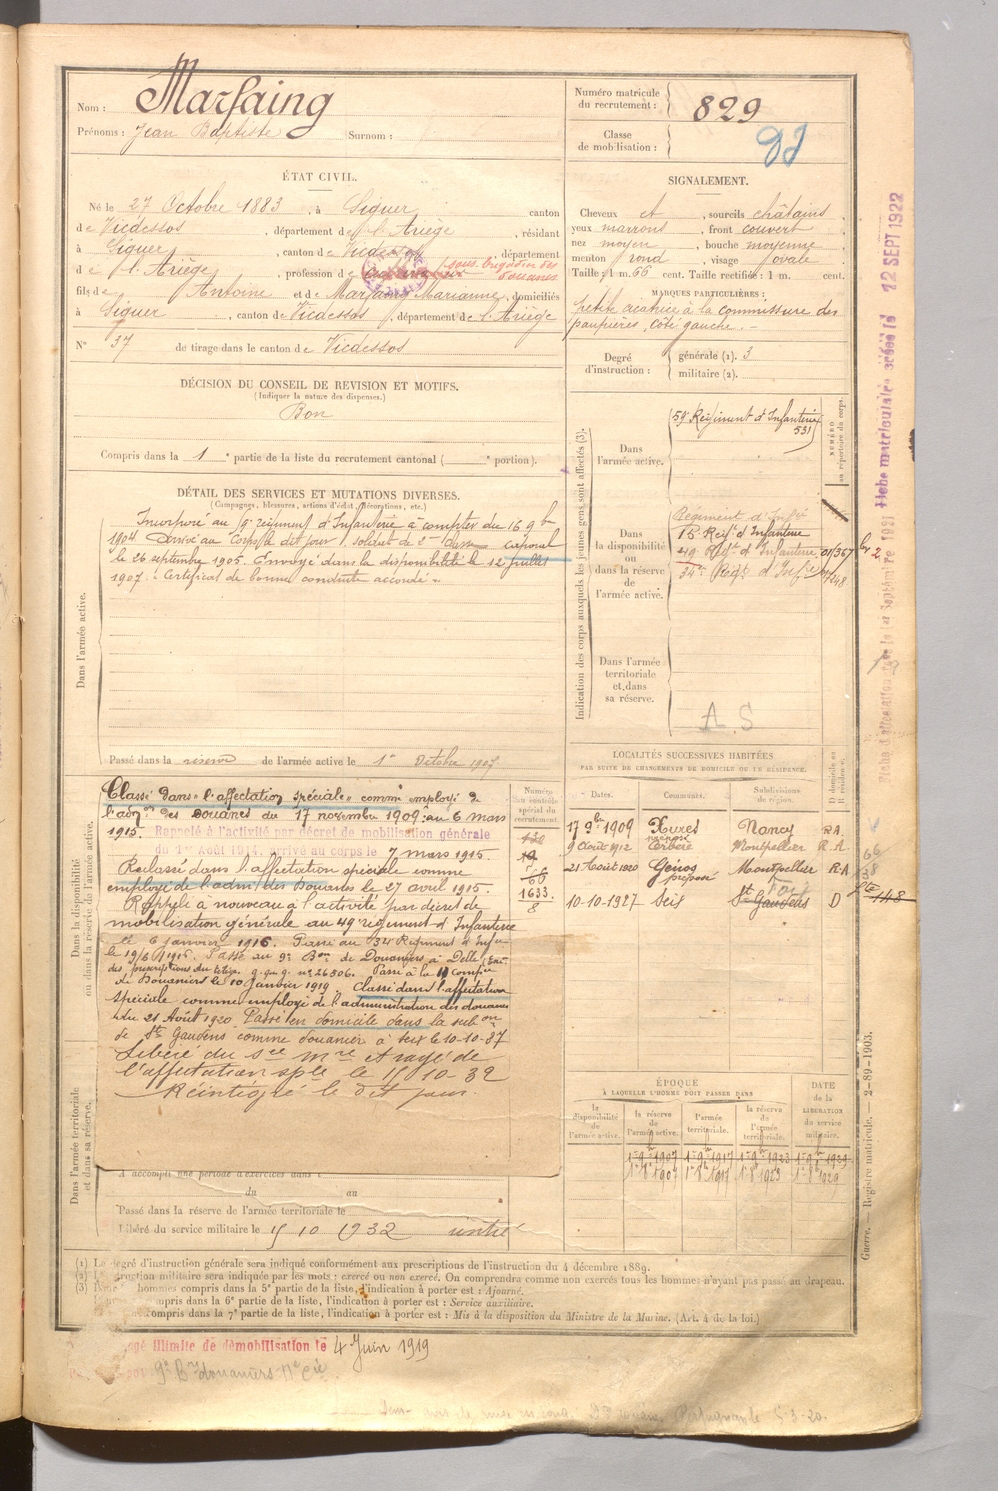 Nom : Marfaing
Prénoms : Jean Baptiste Surnom :
Numéro matricule du recrutement : 829
Classe de mobilisation :
ÉTAT CIVIL.
Né le 27 Octobre 1883, à Siguer, canton
de Vicdessos, département de l'Ariège, résidant
à Siguer, canton de Vicdessos, département
de l'Ariège, profession de sous brigadier des douanes
fils de Antoine et de Marfaing Marianne, domiciliés
à Siguer, canton de Vicdessos, département de l'Ariège
N° 37 de tirage dans le canton de Vicdessos
SIGNALEMENT.
Cheveux et, sourcils châtains
yeux marrons, front couvert
nez moyen, bouche moyenne
menton rond, visage ovale
Taille : 1 m. 66 cent. Taille rectifiée : 1 m. cent.
MARQUES PARTICULIÈRES :
petite cicatrice à la commissure des
paupières, côté gauche. -
Degré d'instruction : générale (1). 3
militaire (2).
DÉCISION DU CONSEIL DE REVISION ET MOTIFS.
(Indiquer la nature des dispenses.)
Bon
Compris dans la 1e partie de la liste du recrutement cantonal ( e portion).
DÉTAIL DES SERVICES ET MUTATIONS DIVERSES.
(Campagnes, blessures, actions d'éclat, décorations, etc.)
Dans l'armée active.
Incorporé au 59e régiment d'Infanterie à compter du 16 9bre
1904. Arrivé au Corps le dit jour, soldat de 2me classe caporal
le 26 septembre 1905. Envoyé dans la disponibilité le 12 juillet
1907. Certificat de bonne conduite accordé -
Passé dans la réserve de l'armée active le 1er Octobre 1907
Indication des corps auxquels les jeunes gens sont affectés (3).
NUMÉRO au répertoire du corps.
Dans l'armée active.
59e Régiment d'Infanterie
531
Dans la disponibilité ou dans la réserve de l'armée active.
Régiment d'Infie
15 Regt d'Infanterie
49 Regt d'Infanterie 01/367
34e Regt d'Infie
Dans l'armée territoriale et dans sa réserve.
A S
Dans la disponibilité ou dans la réserve de l'armée active.
Classé dans "l'affectation spéciale" comme employé de
l'adon des Douanes du 17 novembre 1909 au 6 mars
1915. Rappelé à l'activité par décret de mobilisation générale
du 1er Août 1914, arrivé au corps le 7 mars 1915.
Reclassé dans l'affectation spéciale comme
employé de l'adm. des Douanes le 27 avril 1915.
Rappelé à nouveau à l'activité par décret de
mobilisation générale au 49e régiment d'Infanterie
le 6 janvier 1916. Passé au 34 Régiment d'Infie
le 19/6/1916. Passé au 9e Bon de Douaniers à Delle (Exé.
des prescriptions du télég. q. gn g. n° 26506. Passé à la 11 compie
de Douaniers le 10 janvier 1919. Classé dans l'affectation
spéciale comme employé de l'administration des douanes
du 21 Août 1920. Passé en domicile dans la subon
de St Gaudens comme douanier à Seix le 10-10-27
Libéré du sce mre et rayé de
l'affectation sple le 15 10-32
Réintégré le dit jour.
Numéro au contrôle spécial du recrutement.
1633
8
LOCALITÉS SUCCESSIVES HABITÉES
PAR SUITE DE CHANGEMENTS DE DOMICILE OU DE RÉSIDENCE.
Dates. Communes. Subdivisions de région. D domicile ou R résidence.
17 9bre 1909 Xures Nancy RA
9 Août 1912 Cerbère Montpellier R.A
21 Août 1920 Génos préposé Montpellier RA
10-10-1927 Seix St Gaudens D
ÉPOQUE
À LAQUELLE L'HOMME DOIT PASSER DANS
la disponibilité de l'armée active. la réserve de l'armée active. l'armée territoriale. la réserve de l'armée territoriale. DATE de la LIBÉRATION du service militaire.
1er 9bre 1907 1er 9bre 1917 1er 9bre 1923 1er 9bre 1929
1er 8bre 1907 1er 8bre 1917 1er 8bre 1923 1er 8bre 1929
Dans l'armée territoriale et dans sa réserve.
A accompli une période d'exercices dans
du au
Passé dans la réserve de l'armée territoriale le
Libéré du service militaire le 15 10 1932
(1) Le degré d'instruction générale sera indiqué conformément aux prescriptions de l'instruction du 4 décembre 1889.
(2) L'instruction militaire sera indiquée par les mots : exercé ou non exercé. On comprendra comme non exercés tous les hommes n'ayant pas passé au drapeau.
(3) Pour les hommes compris dans la 5e partie de la liste, l'indication à porter est : Ajourné.
compris dans la 6e partie de la liste, l'indication à porter est : Service auxiliaire.
compris dans la 7e partie de la liste, l'indication à porter est : Mis à la disposition du Ministre de la Marine. (Art. 4 de la loi.)
illimité de démobilisation le 4 Juin 1919
9e Bon douaniers 11e Cie
Guerre. — Registre matricule. — 2-89-1903.
Fiche matriculaire créée le 12 SEPT 1922